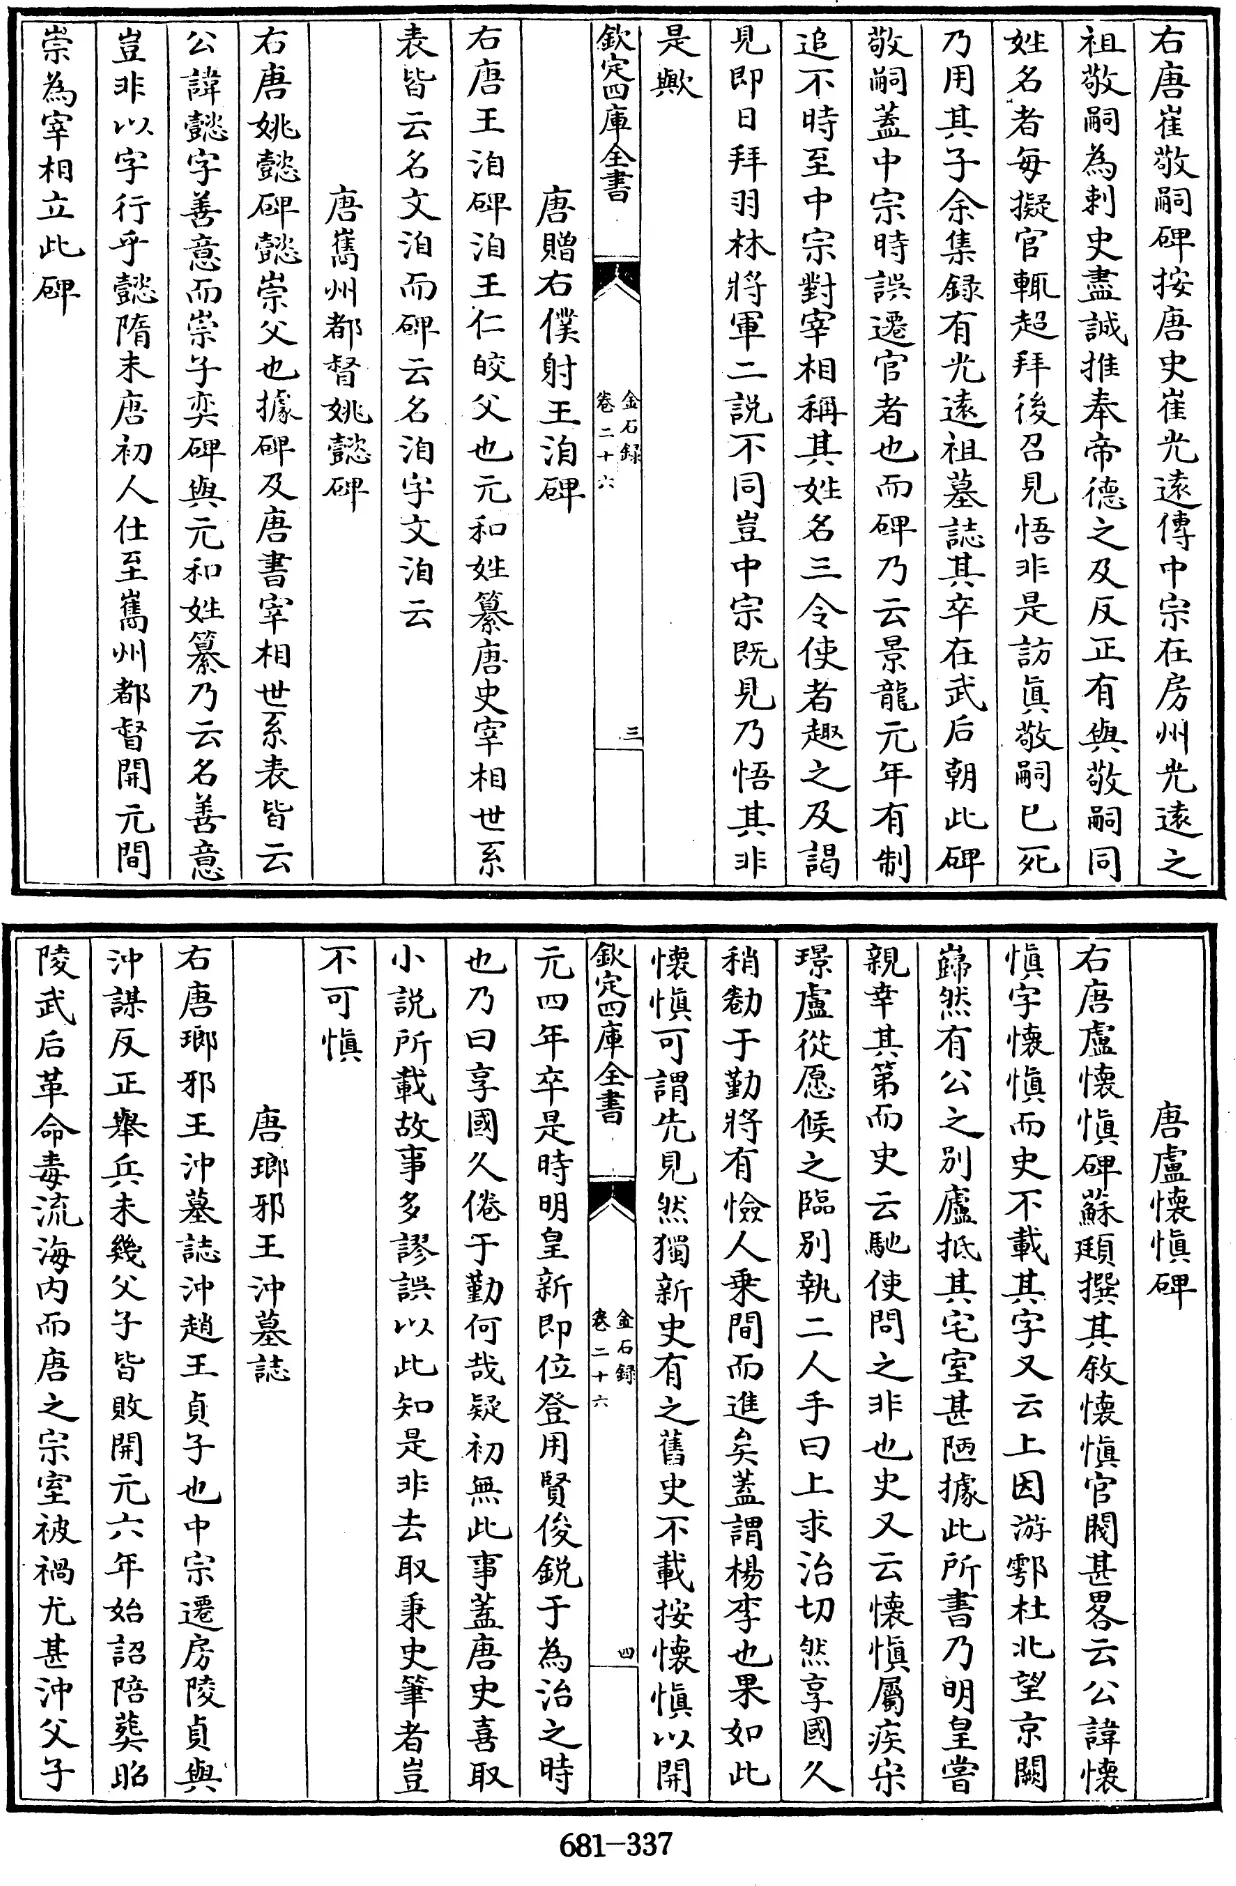 右唐崔敬嗣碑按唐史崔光遠傳中宗在房州光遠之
祖敬嗣為刺史盡誠推奉帝德之及反正有與敬嗣同
姓名者每擬官輒超拜後召見悟非是訪真敬嗣已死
乃用其子余集録有光遠祖墓誌其卒在武后朝此碑
敬嗣蓋中宗時誤遷官者也而碑乃云景龍元年有制
追不時至中宗對宰相稱其姓名三令使者趣之及謁
見即日拜羽林將軍二説不同豈中宗既見乃悟其非
是歟
欽定四庫全書
金石録
卷二十六
三
唐贈右僕射王洎碑
右唐王洎碑洎王仁皎父也元和姓纂唐史宰相世系
表皆云名文洎而碑云名洎字文洎云
唐巂州都督姚懿碑
右唐姚懿碑懿崇父也據碑及唐書宰相世系表皆云
公諱懿字善意而崇子奕碑與元和姓纂乃云名善意
豈非以字行乎懿隋末唐初人仕至巂州都督開元間
崇為宰相立此碑
唐盧懷慎碑
右唐盧懷慎碑蘇頲撰其敘懷慎官閥甚畧云公諱懷
慎字懷慎而史不載其字又云上因游鄠杜北望京闕
巋然有公之别廬抵其宅室甚陋據此所書乃明皇嘗
親幸其第而史云馳使問之非也史又云懷慎屬疾宋
璟盧從愿候之臨别執二人手曰上求治切然享國久
稍勌于勤將有憸人乗間而進矣蓋謂楊李也果如此
懷慎可謂先見然獨新史有之舊史不載按懷慎以開
欽定四庫全書
金石録
卷二十六
四
元四年卒是時明皇新即位登用賢俊鋭于為治之時
也乃曰享國久倦于勤何哉疑初無此事蓋唐史喜取
小説所載故事多謬誤以此知是非去取秉史筆者豈
不可慎
唐瑯邪王沖墓誌
右唐瑯邪王沖墓誌沖趙王貞子也中宗遷房陵貞與
沖謀反正舉兵未幾父子皆敗開元六年始詔陪葬昭
陵武后革命毒流海内而唐之宗室被禍尤甚沖父子
681-337